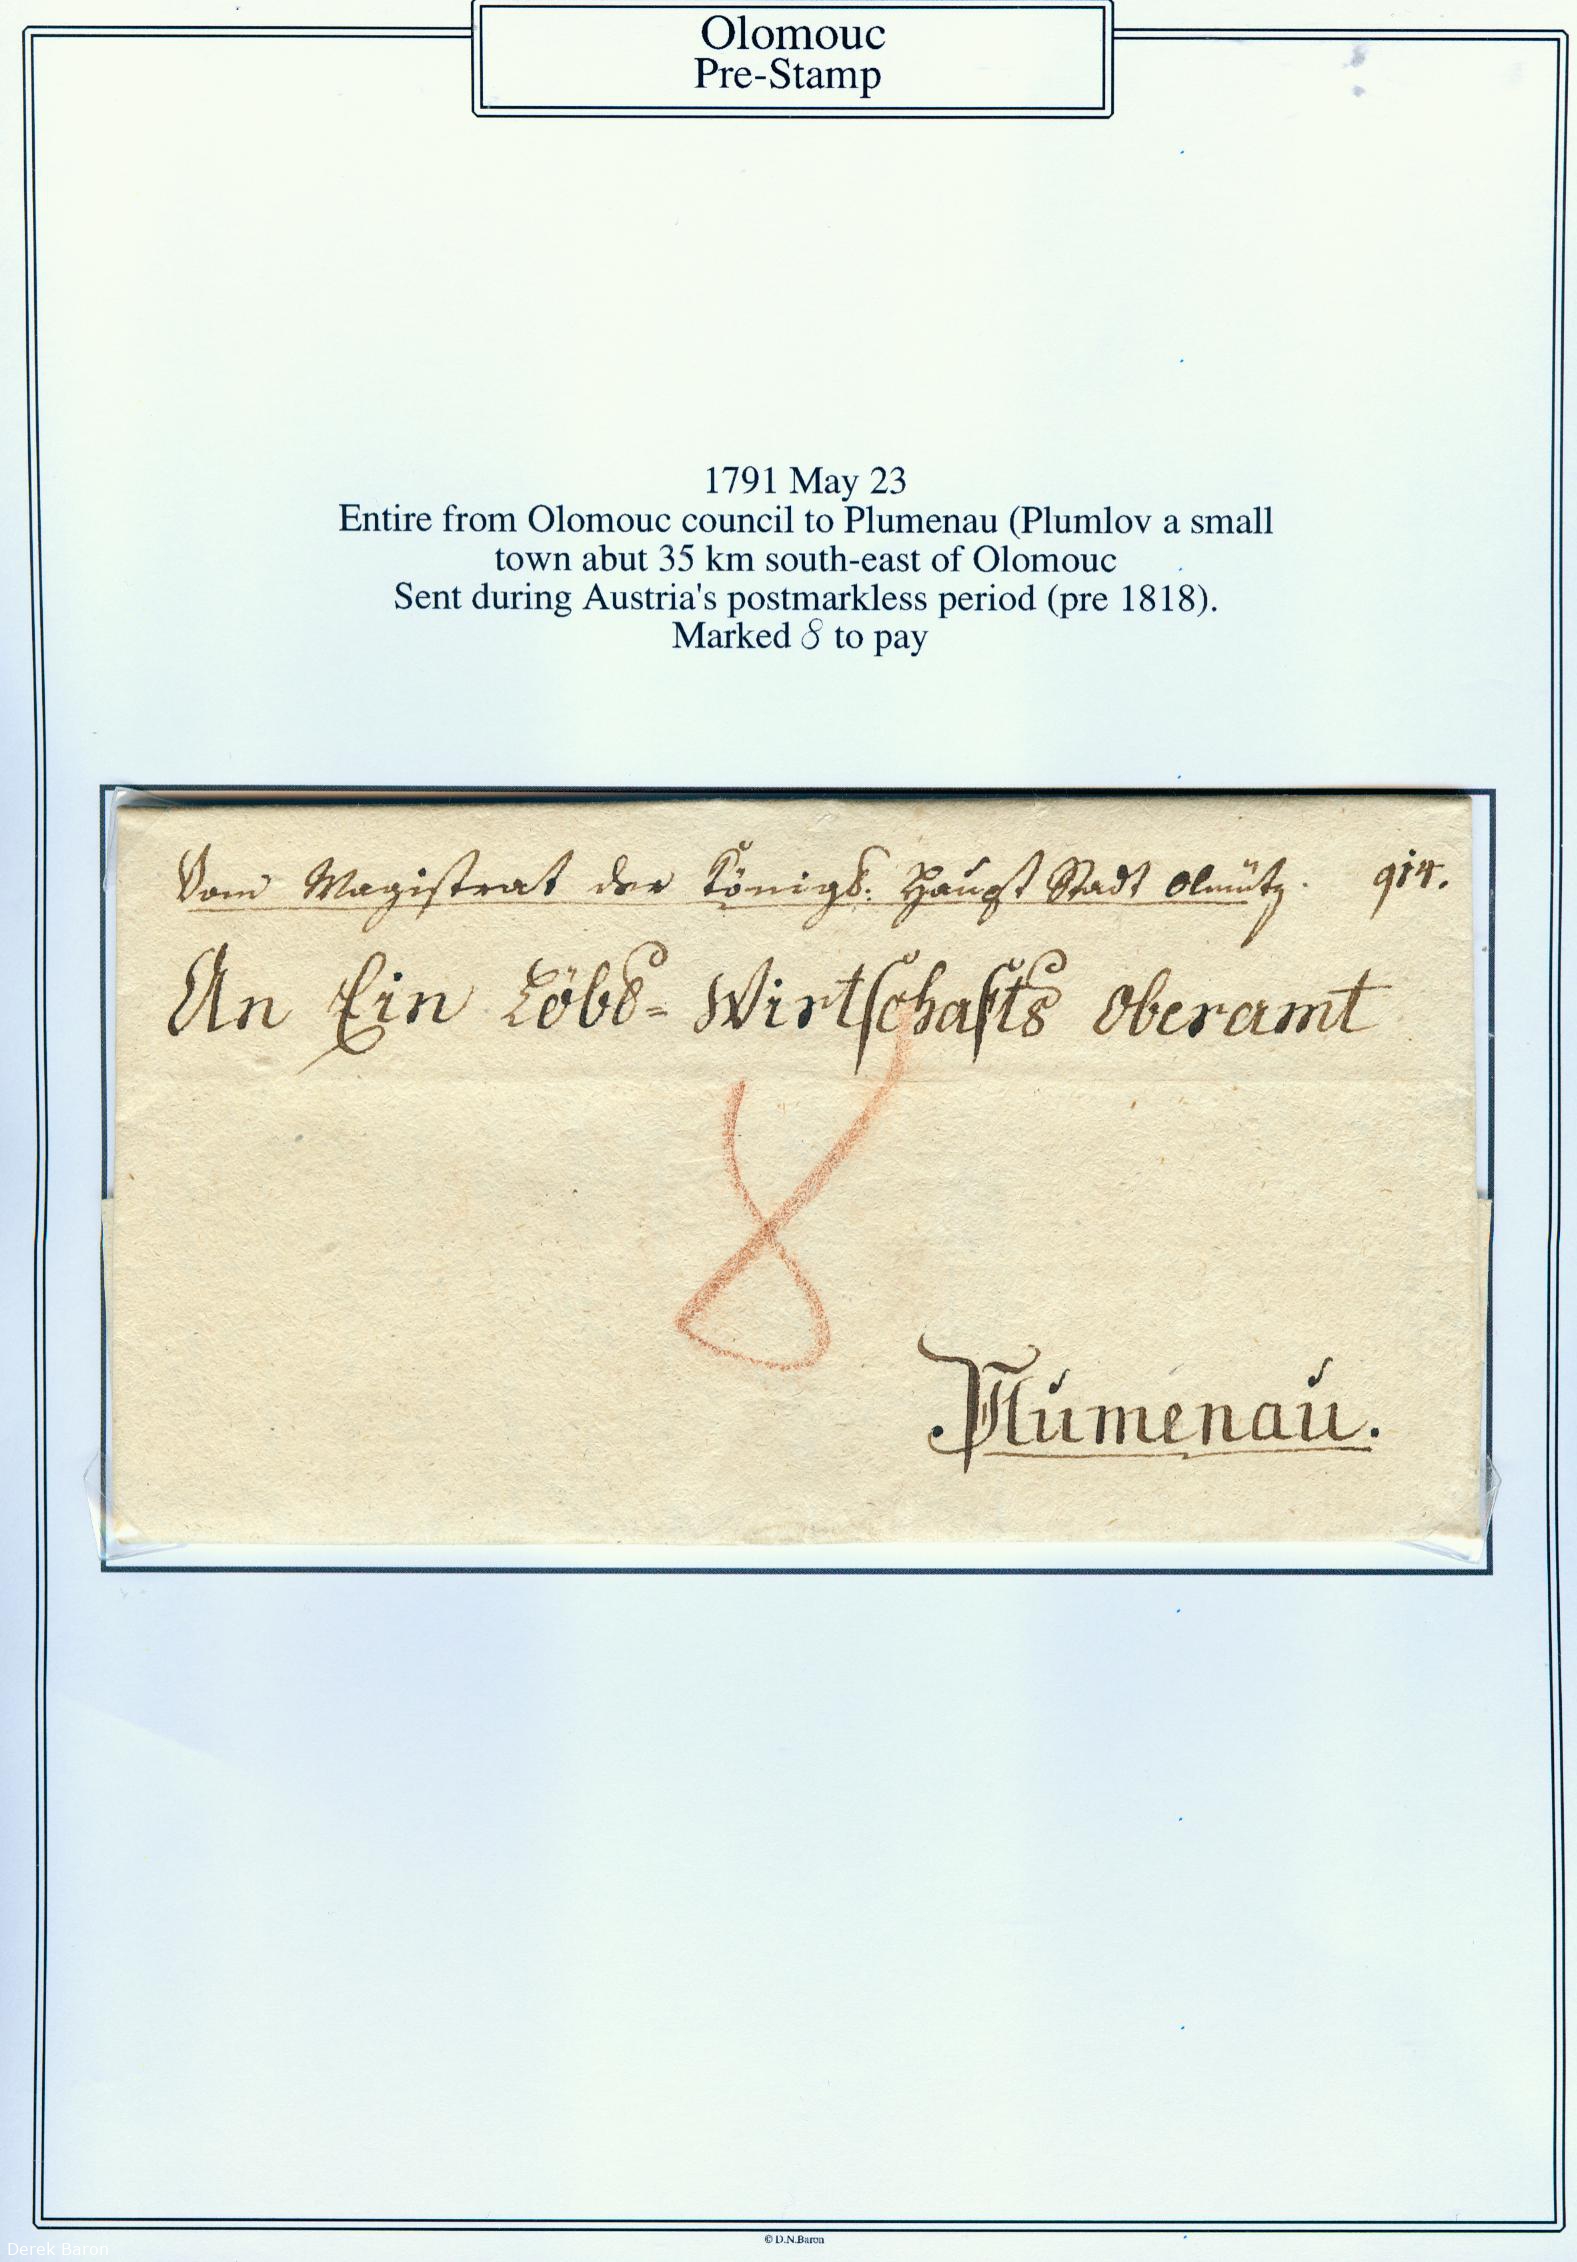 Olomouc
Pre-Stamp
1791 May 23
Entire from Olomouc council to Plumenau (Plumlov a small
town abut 35 km south-east of Olomouc
Sent during Austria's postmarkless period (pre 1818).
Marked 8 to pay
Vom Magistrat der Königs: Haupt Stadt Olmütz.
An Ein Löbs= Wirtschafts Oberamt
8
Plumenau.
© D.N.Baron
Derek Baron